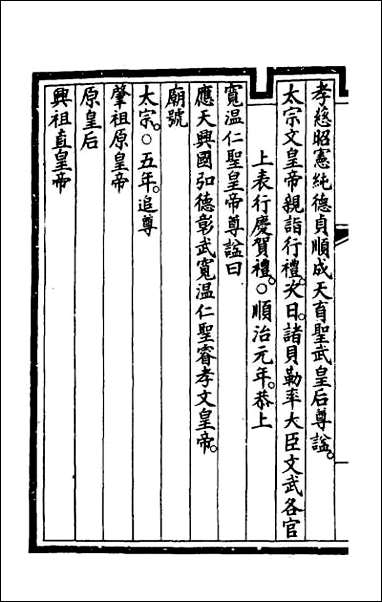 孝慈昭憲純德貞順成天育聖武皇后尊謚。
太宗文皇帝親詣行禮。次日。諸貝勒率大臣文武各官
上表行慶賀禮。○順治元年。恭上
寬温仁聖皇帝尊謚曰
應天興國弘德彰武寬温仁聖睿孝文皇帝。
廟號
太宗。○五年。追尊
肇祖原皇帝
原皇后
興祖直皇帝